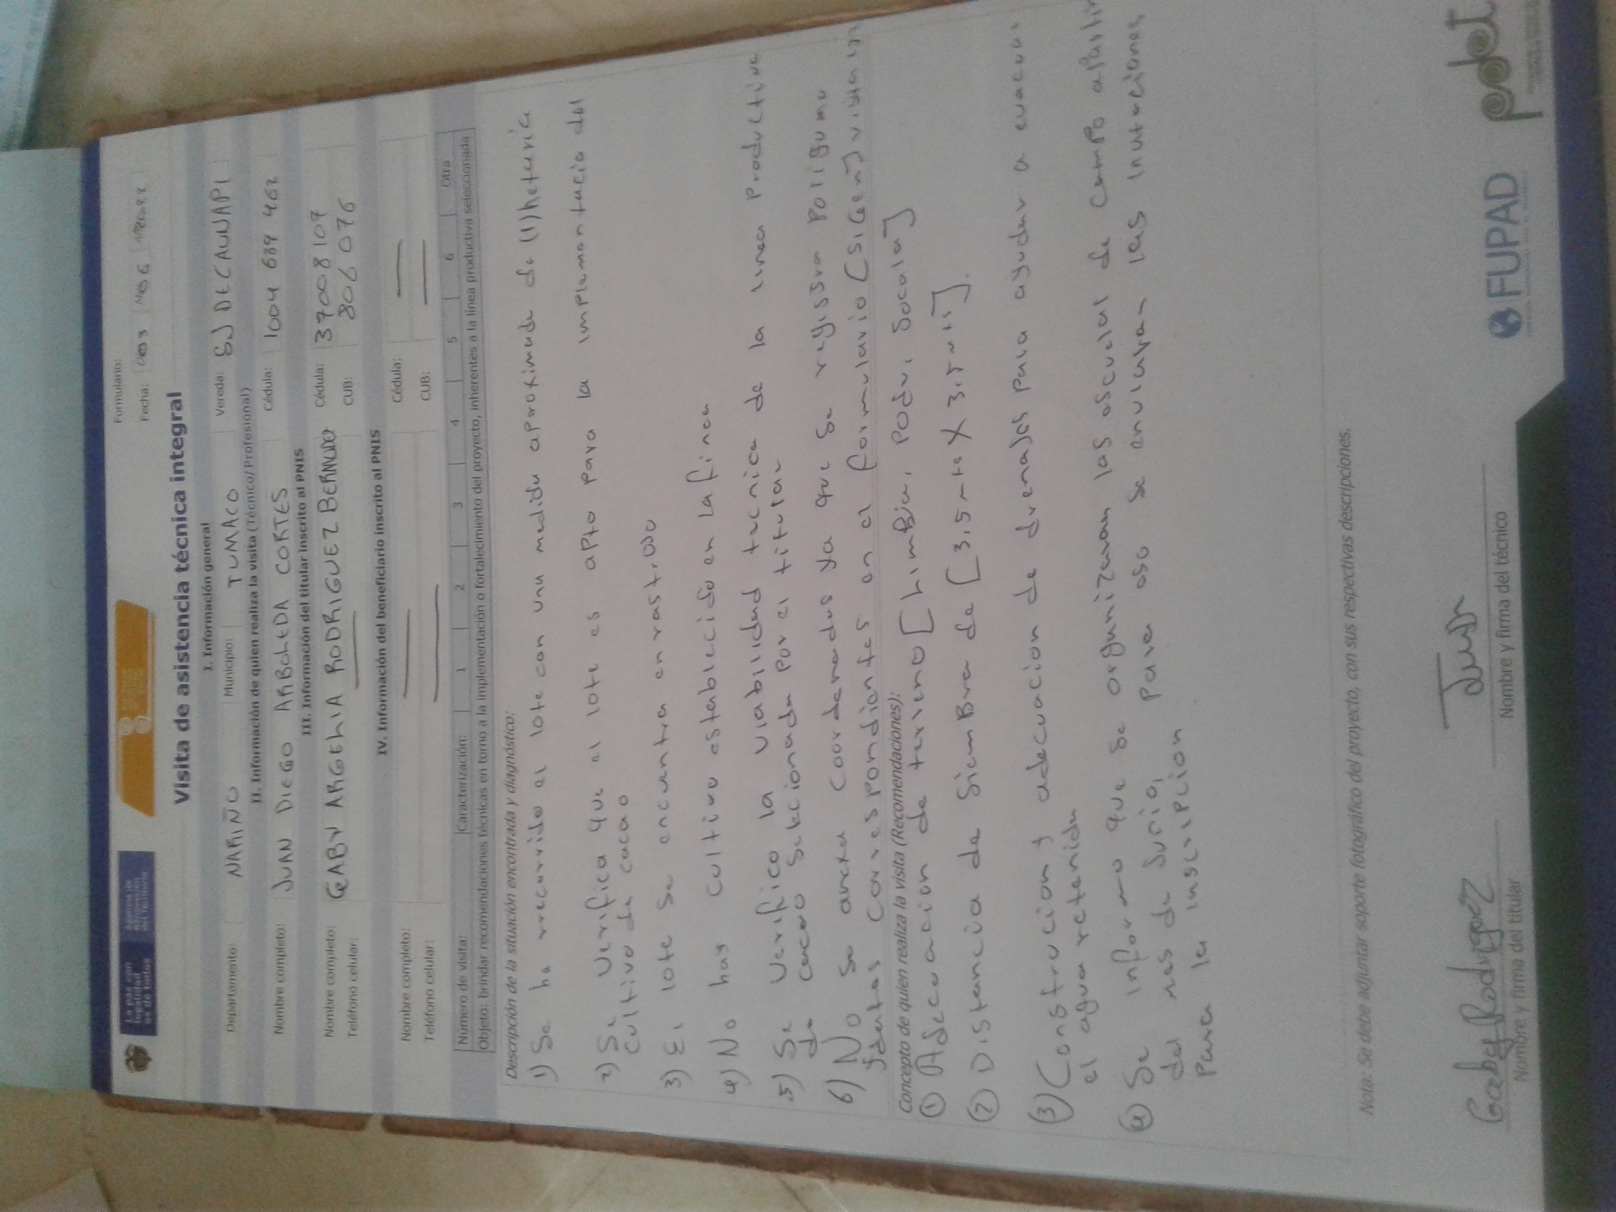 La paz con
legalidad
es de todos
Agencia de
Renovación
del Territorio
Formulario:
Fecha:
Visita de asistencia técnica integral
I. Información general
Departamento: NARIÑO Municipio: TUMACO Vereda: SJ DE CAUNAPI
II. Información de quien realiza la visita (Técnico/Profesional)
Nombre completo: JUAN DIEGO ARBOLEDA CORTES Cédula: 1004 639 462
III. Información del titular inscrito al PNIS
Nombre completo: GABY ARGELIA RODRIGUEZ BERMUDO Cédula: 37008107
Teléfono celular: CUB: 806076
IV. Información del beneficiario inscrito al PNIS
Nombre completo: Cédula:
Teléfono celular: CUB:
Número de visita: Caracterización: 1 2 3 4 5 6 Otra
Objeto: brindar recomendaciones técnicas en torno a la implementación o fortalecimiento del proyecto, inherentes a la línea productiva seleccionada
Descripción de la situación encontrada y diagnóstico:
1) Se ha rrecorrido el lote con una medida aproximada de (1) hetaria
2) Se verifica que el lote es apto para la implementacio del
cultivo de cacao
3) El lote se encuentra en rastrojo
4) No hay cultivo establecido en la finca
5) Se verifico la viabilidad tecnica de la linea productiva
de cacao selecionada por el titular
6) No se anexa coordenadas ya que se registra poligono
correspondiantes en el formulario (SIGEN)
Concepto de quien realiza la visita (Recomendaciones):
① Adecuacion de terreno [limpia, poda, socola]
② Distancia de siembra de [3,5 mts X 3,5 mts].
③ Construcion y adecuacion de drenajes para ayudar a evacuar
el agua retenida
④ Se informo que se organizaran las escuelas de campo apartir
del mes de Junio, para eso se enviaran las invitaciones
para la inscripcion
Nota: Se debe adjuntar soporte fotográfico del proyecto, con sus respectivas descripciones.
Gaby Rodriguez
Nombre y firma del titular Nombre y firma del técnico
FUPAD
pdet